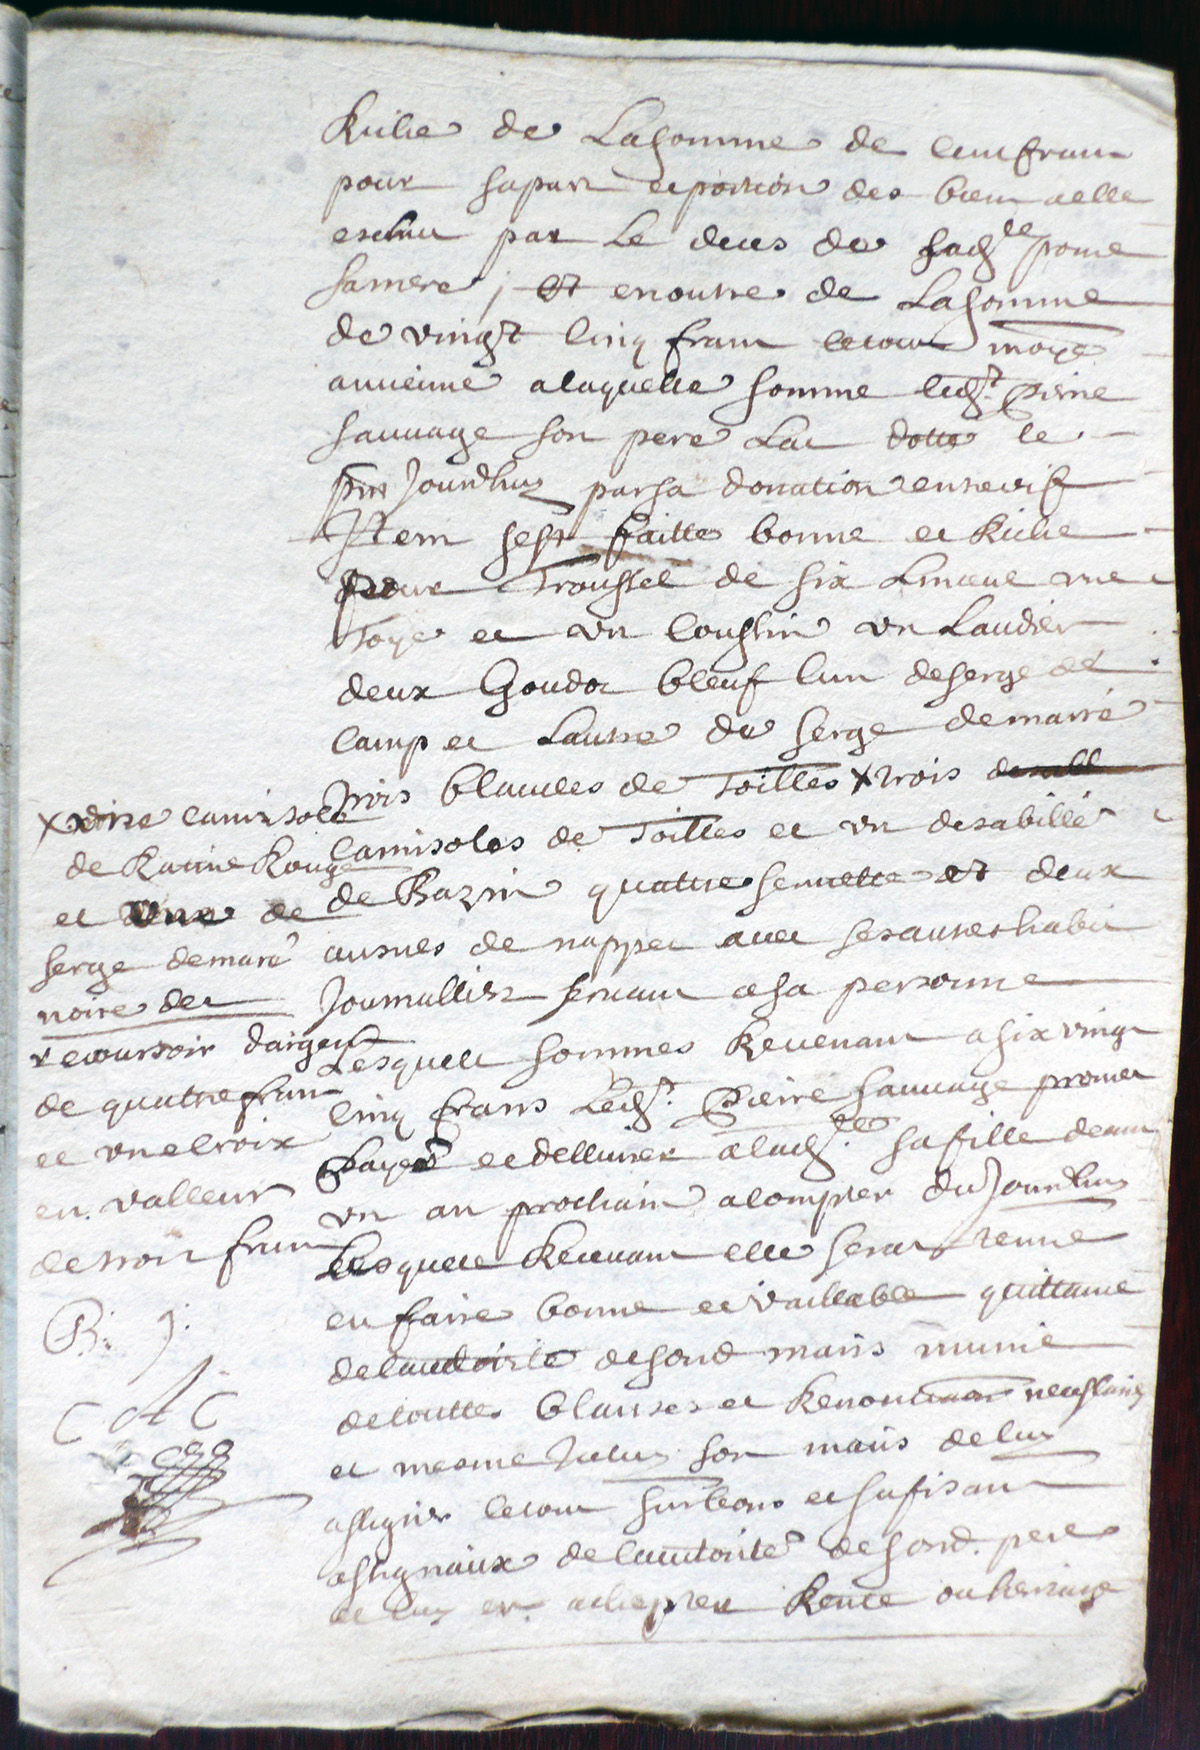 Riche de La somme de cent franc
pour sa part et portion des bien a elle
eschu par le deces de lad.te
sa mere, et en outre de La somme
de vingt cinq franc le tout moye
a laquelle somme led.t Pierre
sauvage son pere La dotte le
jourdhuy par sa donation entrevif
Item sest faitte bonne et Riche
pour Troussel de six Linceul une
Toye et un Coussin un Laudier
deux Goudot bleuf lun de serge de
camp et Lautre de serge demarré
Trois blaudes de Toilles x trois
Camisoles de Toilles et un desabillé
de Bazin quattre serviette et deux
ausnes de nappet avec ses autres habit
Journallier servant a sa personne
Lesquelle sommes Revenant a six vingt
cinq frans Led.t Pierre sauvage promet
payer et dellivrer a lad.te sa fille dans
un an prochain a compter du Jourdhuy
Lesquele Recevant elle sera tenue
en faire bonne et vaillable quittance
de lautoirté de sond maris munie
de toutte clauses et Renontiation necessaire
et mesme Iceluy son maris de luy
assigner le tout sur bons et sufisant
assignaux de lauttorité de sond. pere
et luy en achepter Rente ou heritage
x une camisole
de Ratine Rouge
et une de
serge demaré
noire des
recoursoir dargent
de quatre franc
et une croix
en valleur
de trois franc
B. J.
C A C